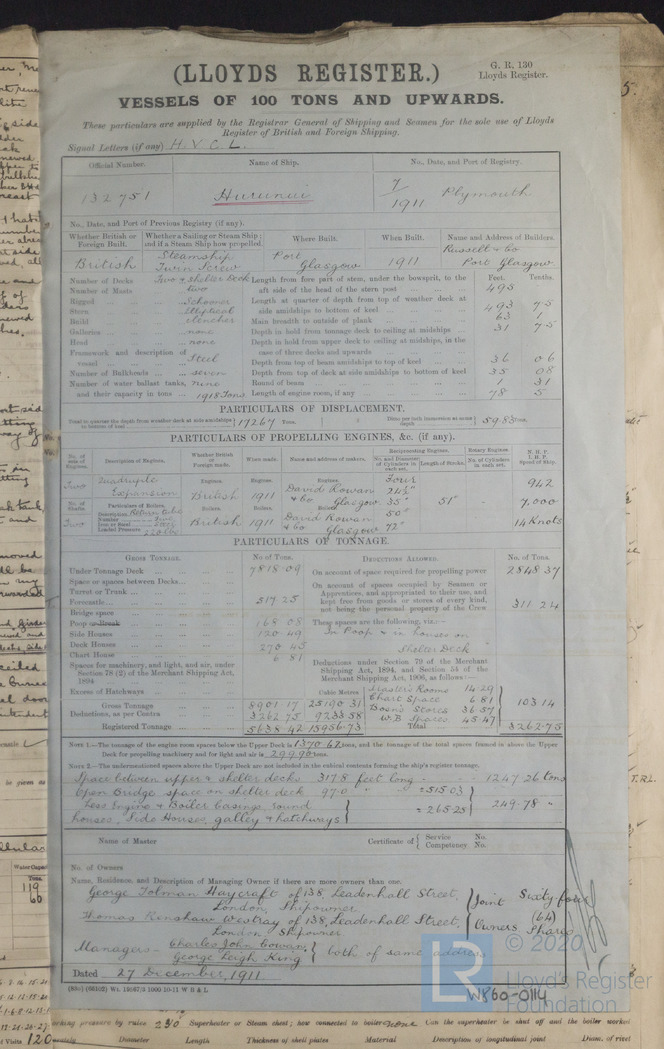 G. R. 130
Lloyds Register.
(LLOYDS REGISTER.)
VESSELS OF 100 TONS AND UPWARDS.
These particulars are supplied by the Registrar General of Shipping and Seamen for the sole use of Lloyds
Register of British and Foreign Shipping.
Signal Letters (if any) H. V C. L.
Official Number. Name of Ship. No., Date, and Port of Registry.
132751 Hurunui 7/1911 Plymouth
No., Date, and Port of Previous Registry (if any).
Whether British or Foreign Built. Whether a Sailing or Steam Ship; and if a Steam Ship how propelled. Where Built. When Built. Name and Address of Builders.
British Steamship Twin Screw Port Glasgow 1911 Russell & Co Port Glasgow
Number of Decks Two & Shelter Deck Length from fore part of stem, under the bowsprit, to the Feet. Tenths.
Number of Masts two aft side of the head of the stern post 493
Rigged Schooner Length at quarter of depth from top of weather deck at
Stern Elliptical side amidships to bottom of keel 493 7·5
Build Clencher Main breadth to outside of plank 63 1
Galleries none Depth in hold from tonnage deck to ceiling at midships 31 7·5
Head none Depth in hold from upper deck to ceiling at midships, in the
Framework and description of case of three decks and upwards
vessel Steel Depth from top of beam amidships to top of keel 36 06
Number of Bulkheads seven Depth from top of deck at side amidships to bottom of keel 35 08
Number of water ballast tanks, nine Round of beam 1 31
and their capacity in tons 1918 Tons Length of engine room, if any 78 5
PARTICULARS OF DISPLACEMENT.
Total to quarter the depth from weather deck at side amidships to bottom of keel 17267 Tons. Ditto per inch immersion at same depth 59.83 Tons.
PARTICULARS OF PROPELLING ENGINES, &c. (if any).
No. of sets of Engines. Description of Engines. Whether British or Foreign made. When made. Name and address of makers. Reciprocating Engines. Rotary Engines. N. H. P.
No. and Diameter of Cylinders in each set. Length of Stroke. No. of Cylinders in each set. I. H. P. Speed of Ship.
Two Quadruple Expansion Engines. British Engines. 1911 Engines. David Rowan & Co Glasgow Four 24½" 35" 50" 72" 51" 942
No. of Shafts Particulars of Boilers. Boilers. Boilers. Boilers. 7,000
Two Description Return tube British 1911 David Rowan & Co Glasgow 14 Knots
Number Four
Iron or Steel Steel
Loaded Pressure 220 lbs
PARTICULARS OF TONNAGE.
GROSS TONNAGE. No of Tons. DEDUCTIONS ALLOWED. No. of Tons.
Under Tonnage Deck 7818·09 On account of space required for propelling power 2848·37
Space or spaces between Decks On account of spaces occupied by Seamen or
Turret or Trunk Apprentices, and appropriated to their use, and
Forecastle 517·25 kept free from goods or stores of every kind,
Bridge space not being the personal property of the Crew 311·24
Poop or Break 168·08 These spaces are the following, viz.:—
Side Houses 120·49 In Poop & in houses on
Deck Houses 270·45 Shelter Deck
Chart House 6·81
Spaces for machinery, and light, and air, under Deductions under Section 79 of the Merchant
Section 78 (2) of the Merchant Shipping Act, Shipping Act, 1894, and Section 54 of the
1894 Merchant Shipping Act, 1906, as follows:—
Excess of Hatchways Cubic Metres Master's Rooms 14·29
Gross Tonnage 8901·17 25190·31 Chart Space 6·81
Deductions, as per Contra 3262·75 9233·58 Bosn's Stores 36·57 103·14
Registered Tonnage 5638·42 15956·73 W.B Spaces 45·47
Total 3262·75
NOTE 1.—The tonnage of the engine room spaces below the Upper Deck is 1370·62 tons, and the tonnage of the total spaces framed in above the Upper
Deck for propelling machinery and for light and air is 299·90 tons.
NOTE 2.—The undermentioned spaces above the Upper Deck are not included in the cubical contents forming the ship's register tonnage.
Space between upper & shelter decks 317·8 feet long 1247·26 tons
Open Bridge space on shelter deck 97·0 " " = 515·03
Less Engine & Boiler casings, round = 265·25 249·78 "
houses, Side Houses, galley & hatchways
Name of Master Certificate of Service No.
Competency No.
No. of Owners
Name, Residence, and Description of Managing Owner if there are more owners than one.
George Tolman Haycraft of 138, Leadenhall Street, Joint Sixty four
London, Shipowner. (64)
Thomas Renshaw Westray of 138, Leadenhall Street, Owners Shares
London, Shipowner.
Managers - Charles John Cowan,
George Leigh King both of same address
Dated 27 December, 1911
W860-0114
LR
© 2020
Lloyd's Register
Foundation